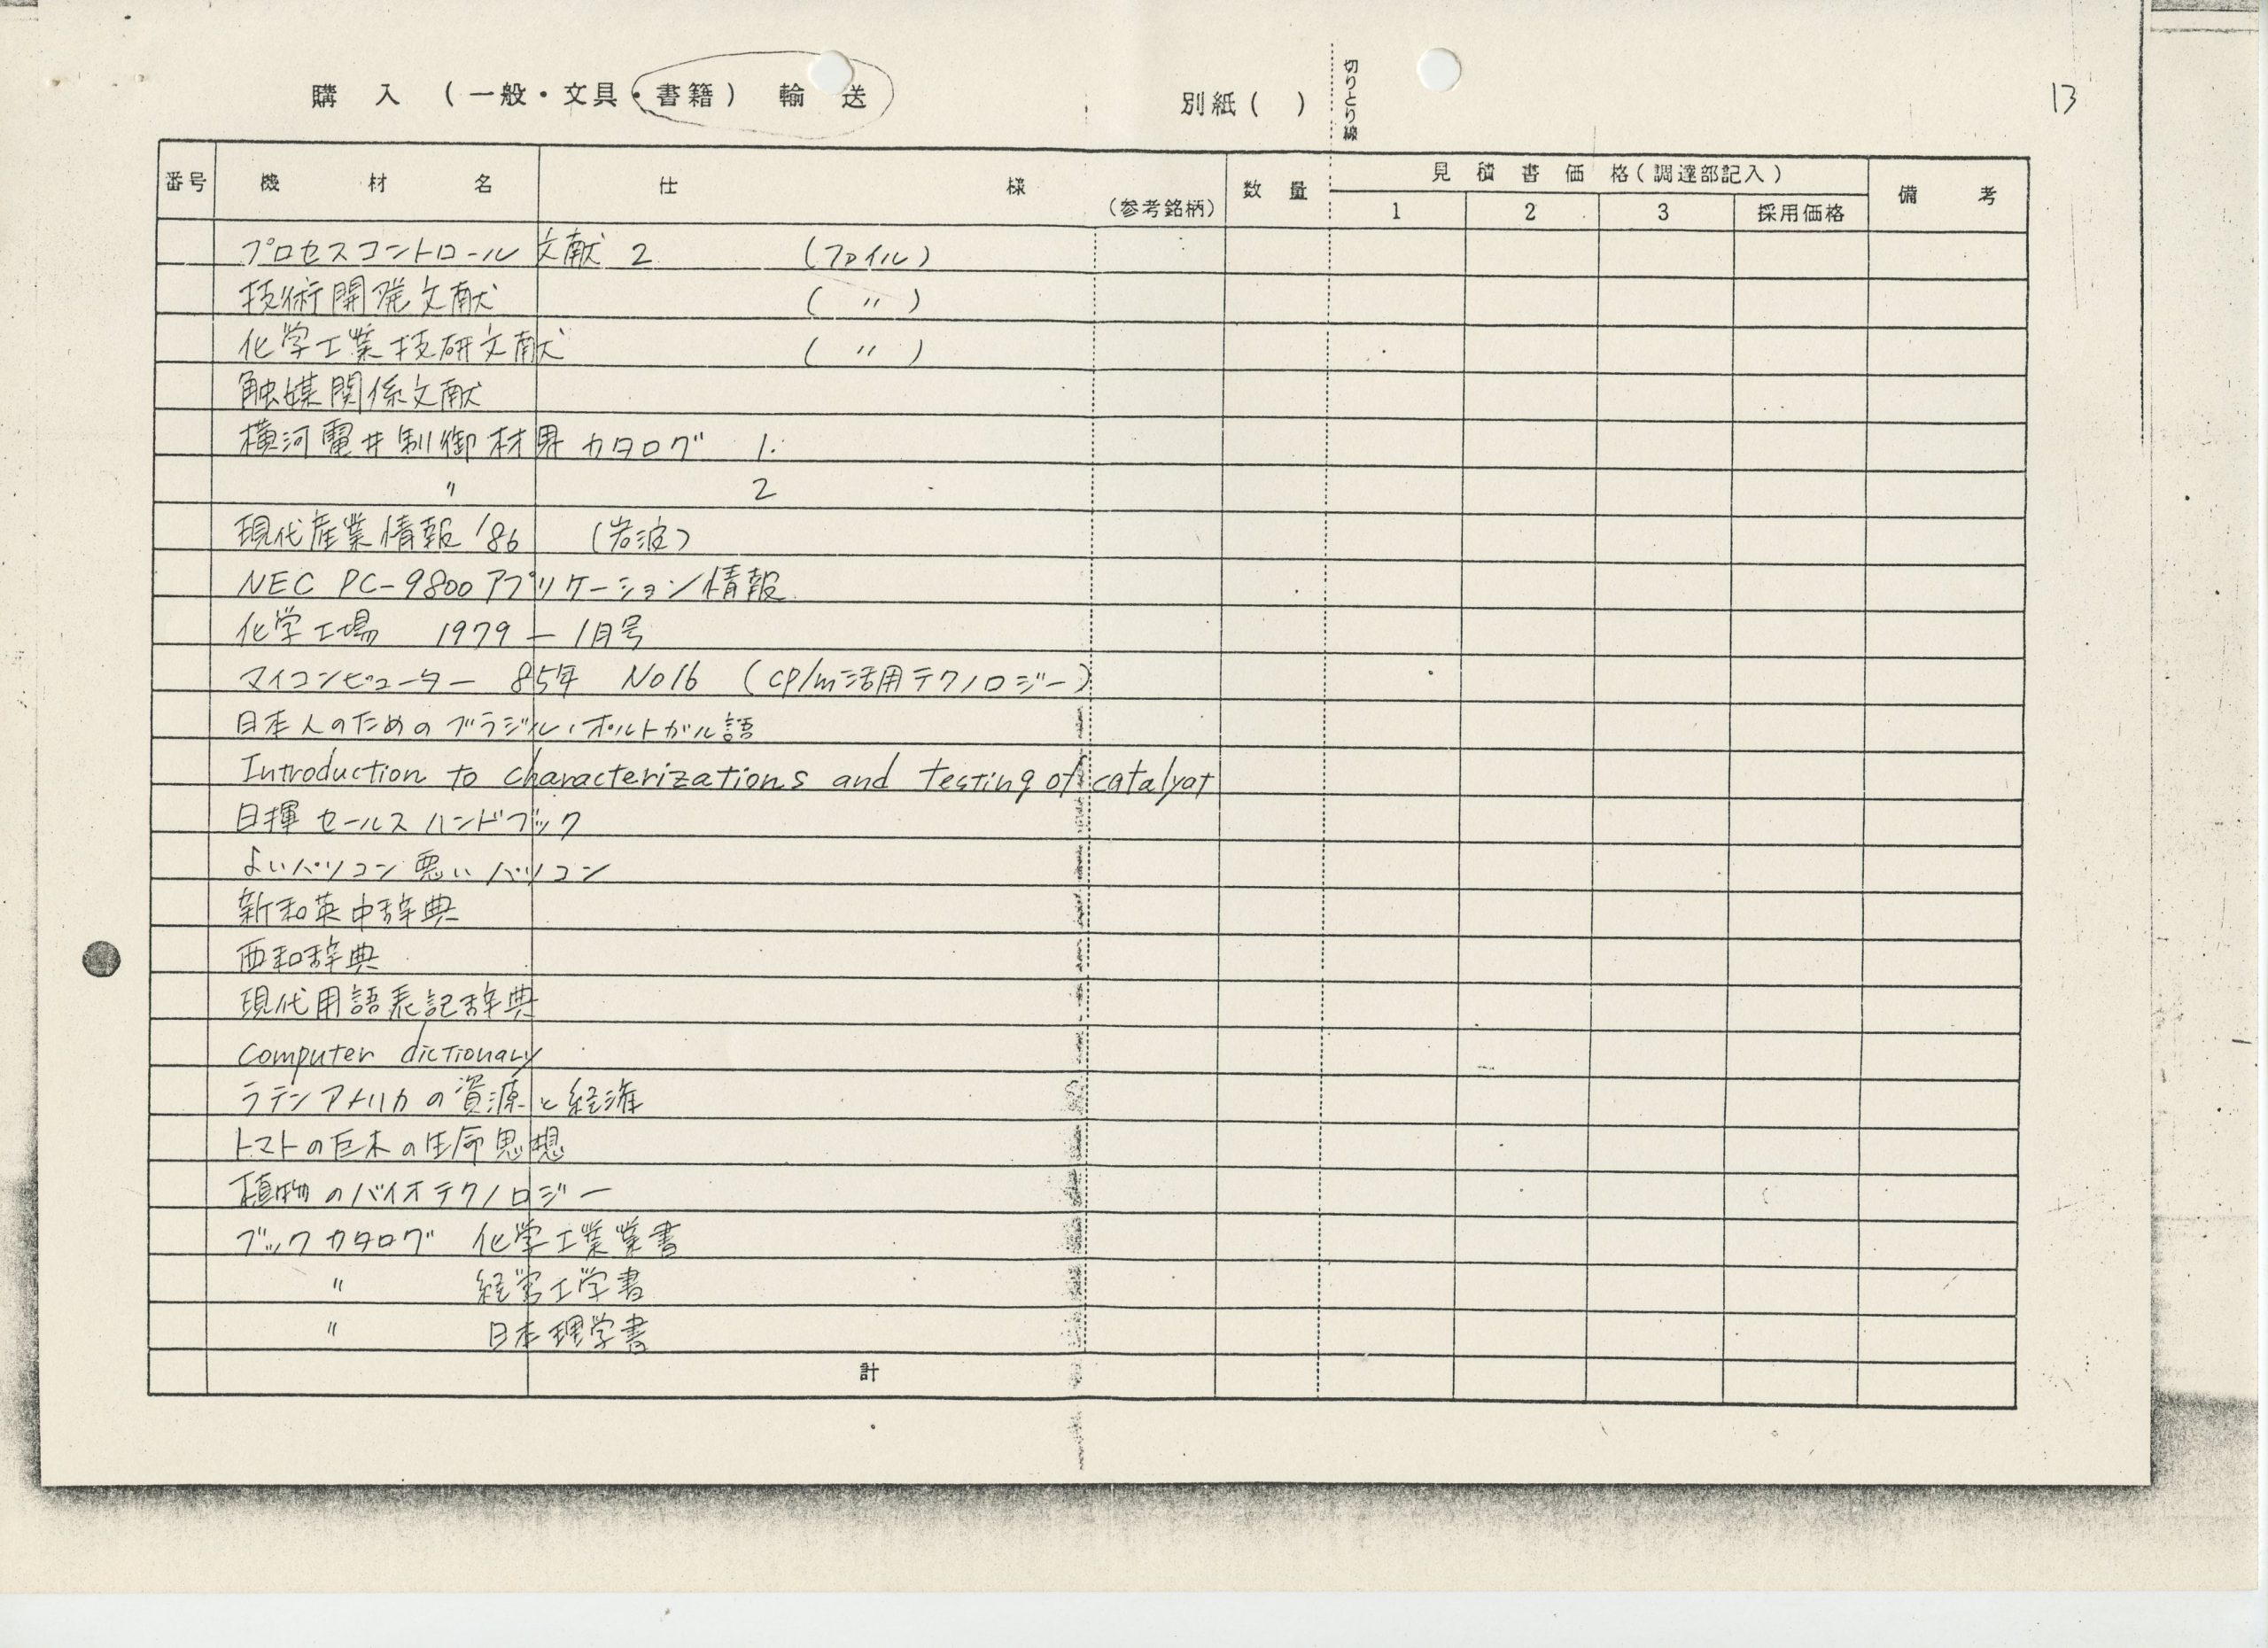 購入（一般・文具・書籍） 輸送
別紙（ ）
切りとり線
13
番号 機材名 仕様 （参考銘柄） 数量 見積書価格（調達部記入） 備考
1 2 3 採用価格
プロセスコントロール文献 2 （ファイル）
技術開発文献 （ 〃 ）
化学工業技研文献 （ 〃 ）
触媒関係文献
横河電井制御材界カタログ 1.
〃 2
現代産業情報 '86 （岩波）
NEC PC-9800アプリケーション情報
化学工場 1979 — 1月号
マイコンピューター 85年 No16 （cp/m活用テクノロジー）
日本人のためのブラジル・ポルトガル語
Introduction to characterizations and testing of catalyst
日揮セールスハンドブック
よいパソコン悪いパソコン
新和英中辞典
西和辞典
現代用語表記辞典
Computer dictionary
ラテンアメリカの資源と経済
トマトの巨木の生命思想
植物のバイオテクノロジー
ブックカタログ 化学工業業書
〃 経営工学書
〃 日本理学書
計